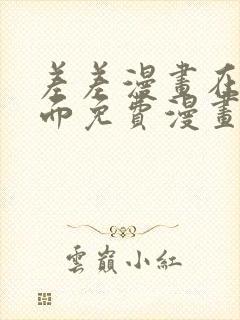 差差漫畫在
面免費漫畫
雲巔小紅